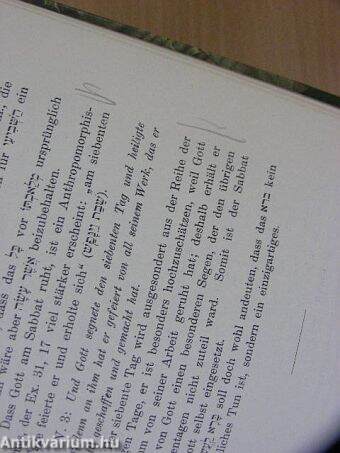 die
für ein
dass das כל vor ursprünglich
wäre aber אשר עשה beizubehalten.
Dass Gott am Sabbat ruht, ist ein Anthropomorphis-
der Ex. 31, 17 viel stärker erscheint: „am siebenten
feierte er und erholte sich“ (שבת וינפש).
3: Und Gott segnete den siebenten Tag und heiligte
denn an ihm hat er gefeiert von all seinem Werk, das er
geschaffen und gemacht hat.
siebente Tag wird ausgesondert aus der Reihe der
gen Tage, er ist besonders hochzuschätzen, weil Gott
m von seiner Arbeit geruht hat; deshalb erhält er
von Gott einen besonderen Segen, der den übrigen
entagen nicht zuteil ward. Somit ist der Sabbat
ott selbst eingesetzt.
soll doch wohl andeuten, dass das ברא kein
liches Tun ist, sondern ein einzigartiges.
Antikvárium.hu